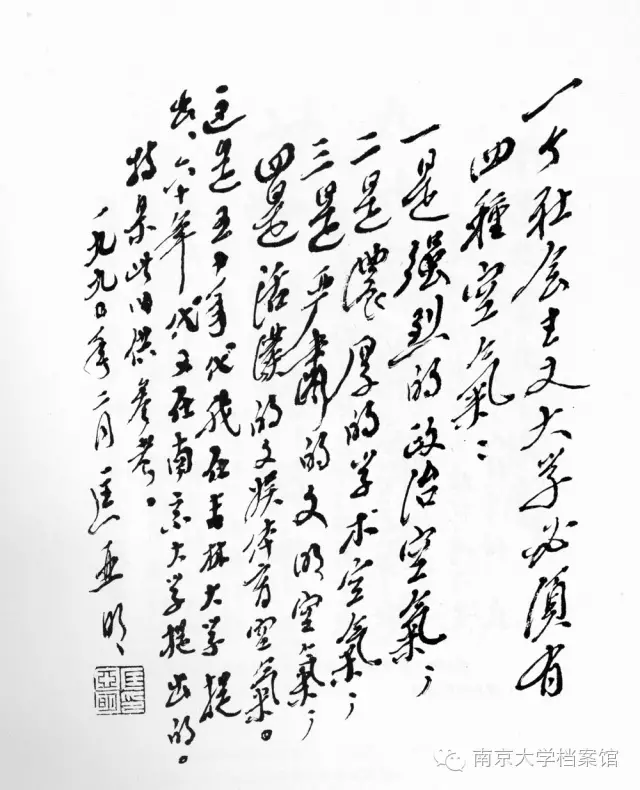 一个社会主义大学必須有
四種空氣：
一是强烈的政治空氣；
二是濃厚的学术空氣；
三是严肅的文明空氣；
四是活潑的文娱体育空氣。
这是五十年代我在吉林大学提
出、六十年代又在南京大学提出的。
特录此以供参考。
一九九〇年二月 匡亚明
南京大学档案馆